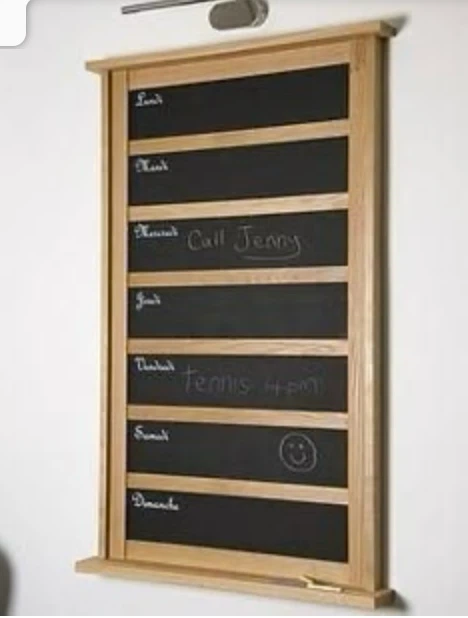 Lundi
Mardi
Mercredi Call Jenny
Jeudi
Vendredi Tennis 4pm
Samedi
Dimanche